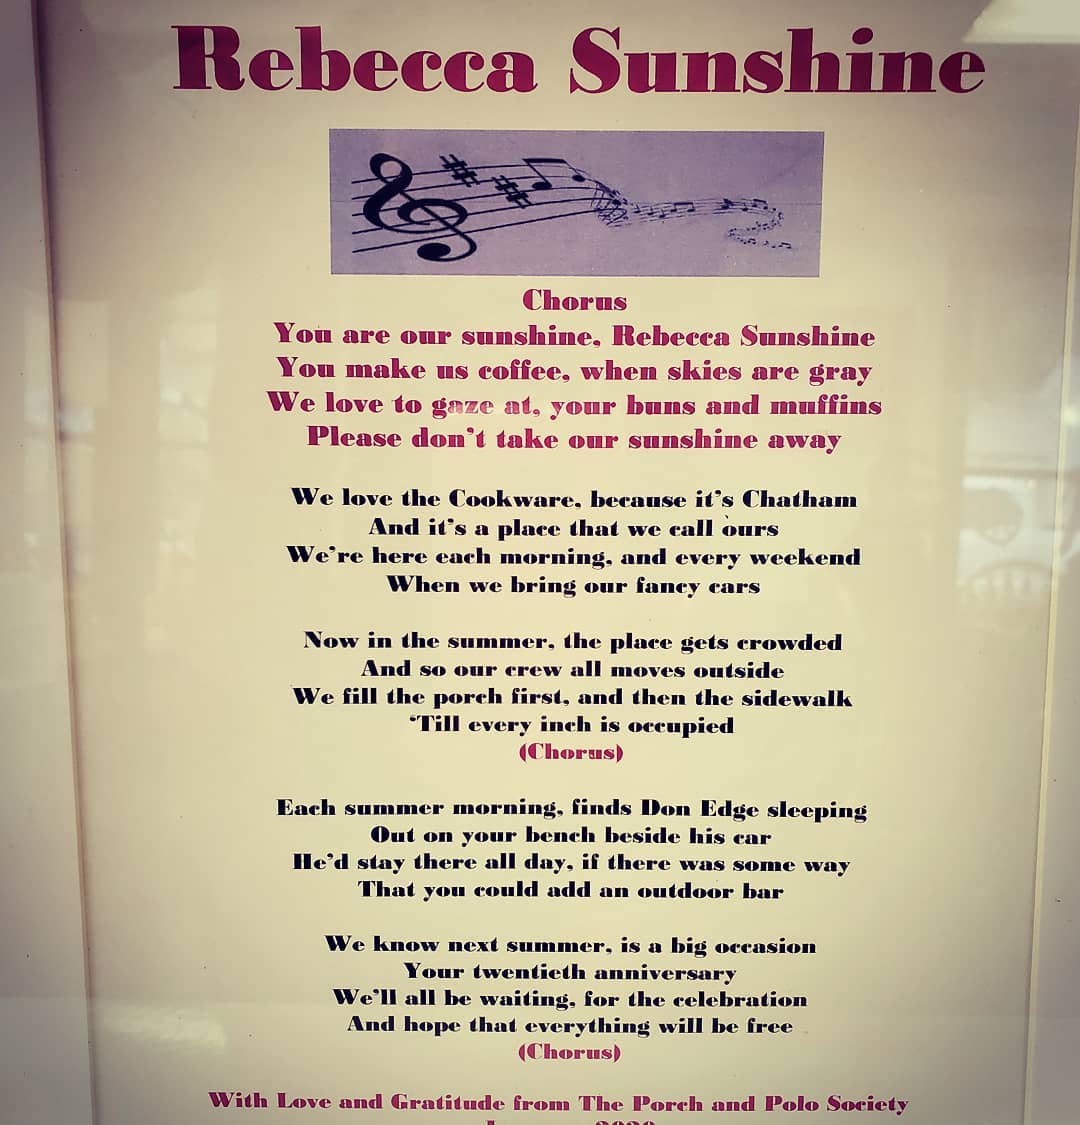 Rebecca Sunshine
Chorus
You are our sunshine, Rebecca Sunshine
You make us coffee, when skies are gray
We love to gaze at, your buns and muffins
Please don't take our sunshine away
We love the Cookware, because it's Chatham
And it's a place that we call ours
We're here each morning, and every weekend
When we bring our fancy cars
Now in the summer, the place gets crowded
And so our crew all moves outside
We fill the porch first, and then the sidewalk
'Till every inch is occupied
(Chorus)
Each summer morning, finds Don Edge sleeping
Out on your bench beside his car
He'd stay there all day, if there was some way
That you could add an outdoor bar
We know next summer, is a big occasion
Your twentieth anniversary
We'll all be waiting, for the celebration
And hope that everything will be free
(Chorus)
With Love and Gratitude from The Porch and Polo Society